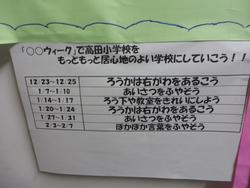 「○○ウィーク」で高田小学校を
もっともっと居心地のよい学校にしていこう！！
12/23～12/25 ろうかは右がわをあるこう
1/7～1/10 あいさつをふやそう
1/14～1/17 ろう下や教室をきれいにしよう
1/20～1/24 ろうかは右がわをあるこう
1/27～1/31 あいさつをふやそう
2/3～2/7 ぽかぽか言葉をふやそう